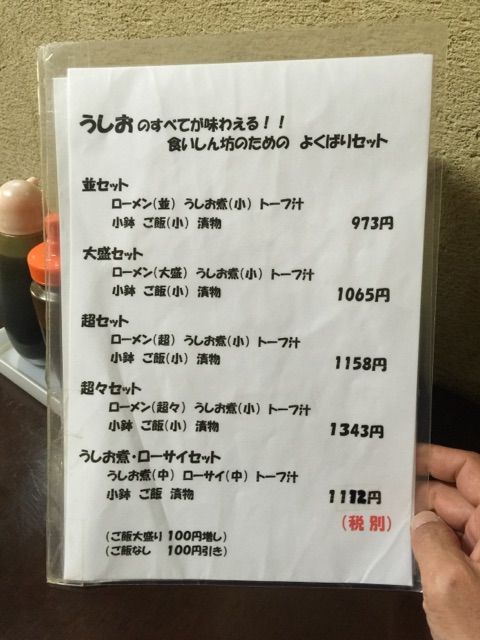 うしおのすべてが味わえる！！
食いしん坊のための よくばりセット
並セット
ローメン(並) うしお煮(小) トーフ汁
小鉢 ご飯(小) 漬物 973円
大盛セット
ローメン(大盛) うしお煮(小) トーフ汁
小鉢 ご飯(小) 漬物 1065円
超セット
ローメン(超) うしお煮(小) トーフ汁
小鉢 ご飯(小) 漬物 1158円
超々セット
ローメン(超々) うしお煮(小) トーフ汁
小鉢 ご飯(小) 漬物 1343円
うしお煮・ローサイセット
うしお煮(中) ローサイ(中) トーフ汁
小鉢 ご飯 漬物 1112円
(税別)
(ご飯大盛り 100円増し)
(ご飯なし 100円引き)